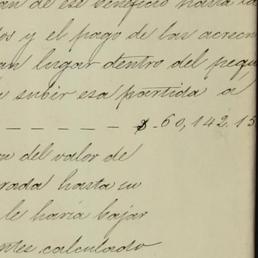 de ese beneficio hasta la
y el pago de las acreen
lugar dentro del pequ
subir esa partida a
$ 60,142.15
del valor de
rada hasta su
le haria bajar
ntes calculado